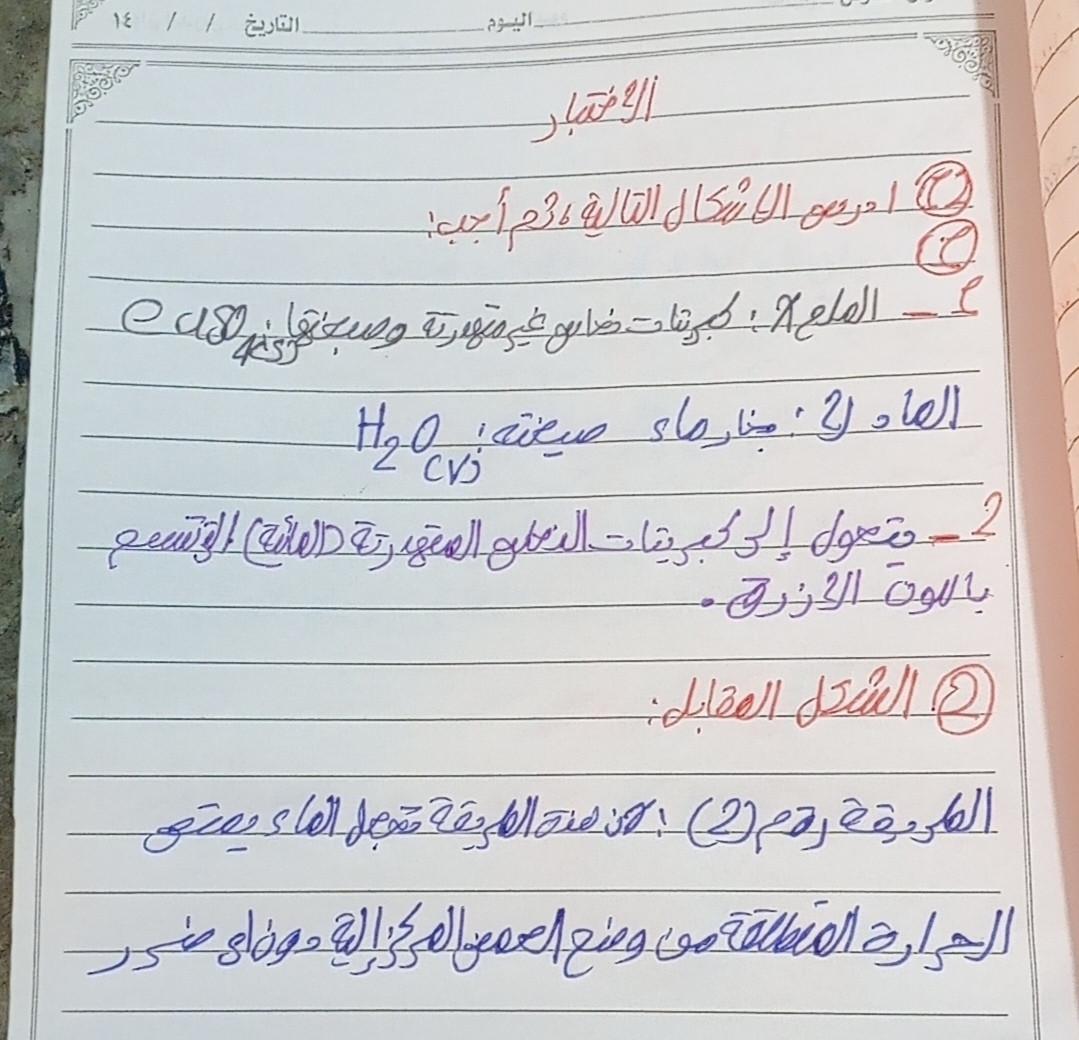 اليوم التاريخ / / ١٤
الاختبار
① ادرس الأشكال التالية، ثم أجب:
①
1 - الملح X : كبريتات نحاس غير متميهة وصيغتها: CuSO4(s)
المادة y : بخار ماء صيغته: H2O(v)
2 - تتحول إلى كبريتات النحاس المتميهة (المائية) تتسم
باللون الأزرق.
② الشكل المقابل:
الطريقة رقم (2) : لأن هذه الطريقة تجعل الماء يمتص
الحرارة المنطلقة من وضع الحمض المركز إليه دون أي ضرر